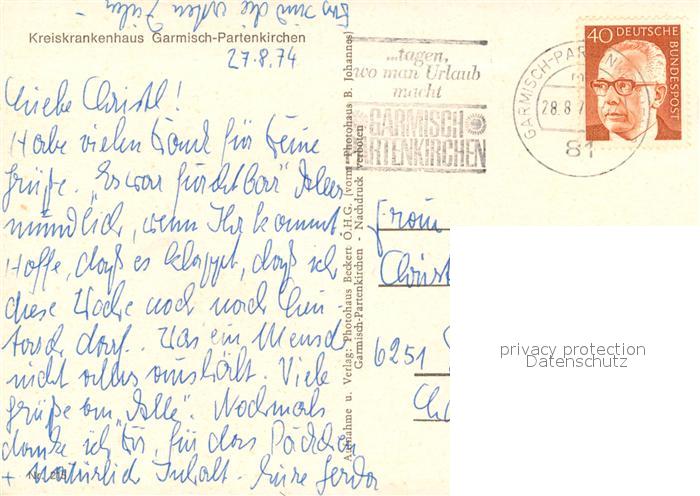 Kreiskrankenhaus Garmisch-Partenkirchen
27.8.74
Liebe Christl!
Habe vielen Dank für Deine
Grüße. "Es war furchtbar" Alles
mündlich, wenn Ihr kommt.
Hoffe, daß es klappt, daß ich
diese Woche noch nach
darf. Was ein Mensch
nicht alles aushält. Viele
Grüße an "Alle". Nochmals
danke ich Dir, für das Päckchen
+ natürlich Inhalt. Eure Gerda
Nr. 215
Aufnahme u. Verlag: Photohaus Beckert O.H.G. (vorm. Photohaus B. Johannes)
Garmisch-Partenkirchen - Nachdruck verboten
...tagen,
wo man Urlaub
macht
GARMISCH
PARTENKIRCHEN
GARMISCH-PARTENK
28.8.7
81
40 DEUTSCHE
BUNDESPOST
Frau
Christ
6251
privacy protection
Datenschutz